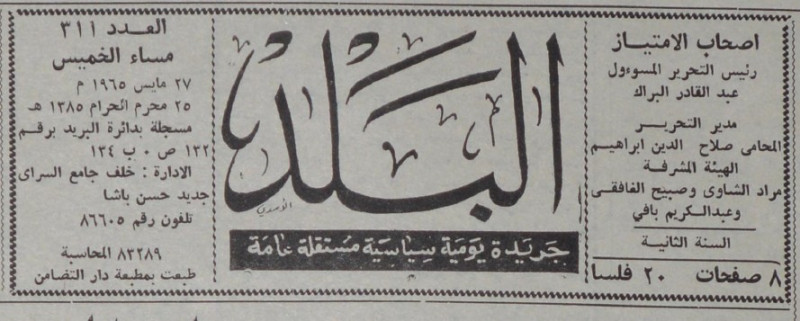 اصحاب الامتياز
رئيس التحرير المسوءول
عبد القادر البراك
مدير التحرير
المحامى صلاح الدين ابراهيم
الهيئة المشرفة
مراد الشاوى وصبيح الغافقى
وعبدالكريم بافي
السنة الثانية
٨ صفحات ٢٠ فلسا
البلد
جريدة يومية سياسية مستقلة عامة
العدد ٣١١
مساء الخميس
٢٧ مايس ١٩٦٥ م
٢٥ محرم الحرام ١٣٨٥ هـ
مسجلة بدائرة البريد برقم
١٣٢ ص ٠ ب ١٣٤
الادارة : خلف جامع السراى
جديد حسن باشا
تلفون رقم ٨٦٦٠٥
٨٣٢٨٩ المحاسبة
طبعت بمطبعة دار التضامن